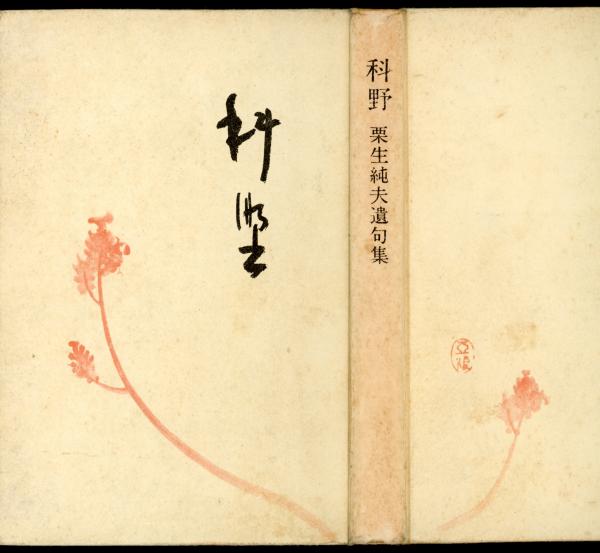 科野
科野 栗生純夫遺句集